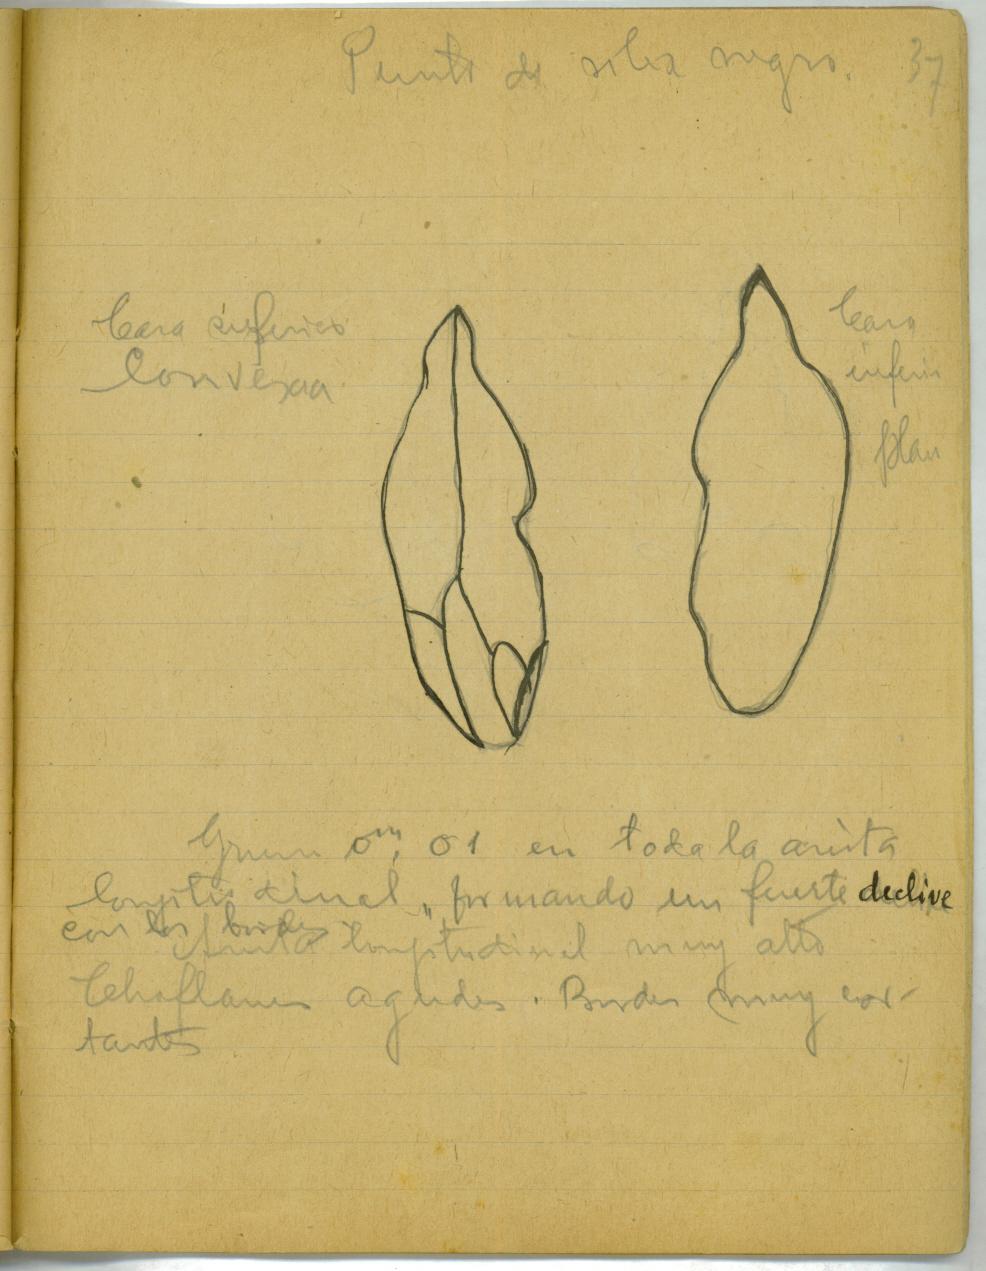 Punta de silex negro. 37
Cara inferior
Convexa
Cara
inferi
plan
0m, 01 en toda la arista
longitudinal, formando un fuerte declive
con los bordes
Arista longitudinal muy alto
Chaflanes agudos. Bordes muy cor-
tantes